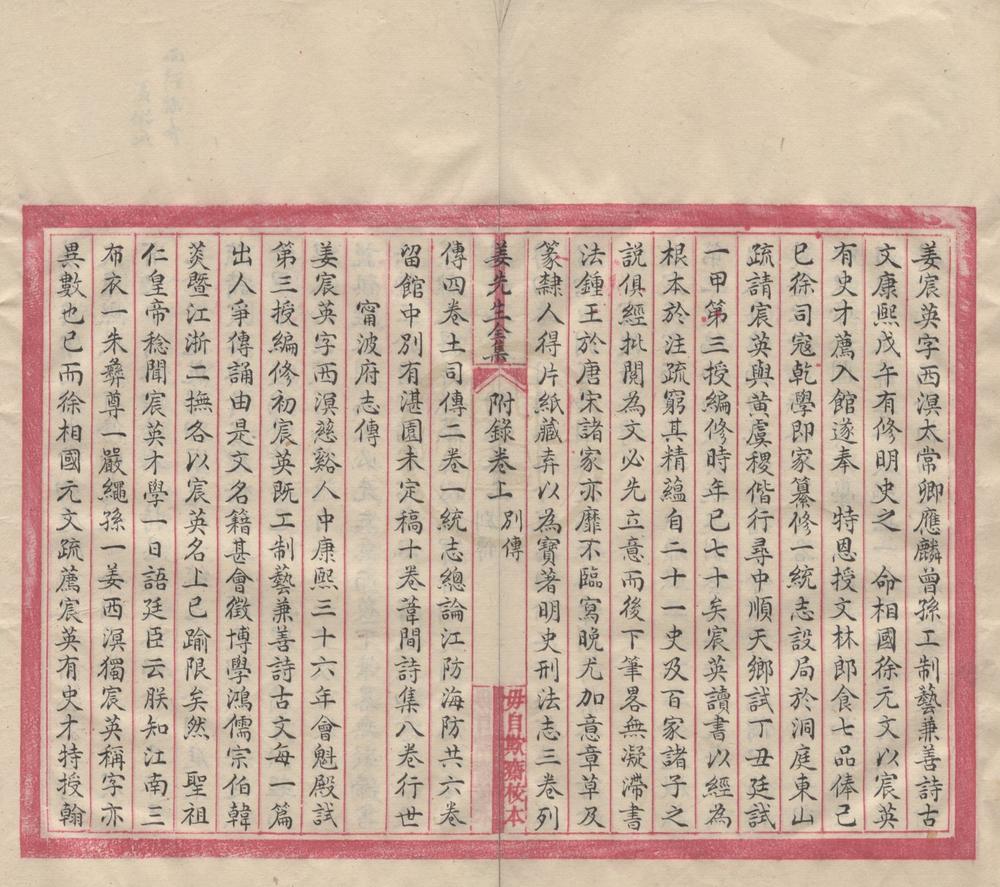 姜宸英字西溟太常卿應麟曾孫工制藝兼善詩古
文康熙戊午有修明史之　命相國徐元文以宸英
有史才薦入館遂奉　特恩授文林郎食七品俸己
巳徐司寇乾學即家纂修一統志設局於洞庭東山
疏請宸英與黄虞稷偕行尋中順天鄉試丁丑廷試
一甲第三授編修時年已七十矣宸英讀書以經為
根本於注疏窮其精蘊自二十一史及百家諸子之
說俱經批閱為文必先立意而後下筆畧無凝滯書
法鍾王於唐宋諸家亦靡不臨寫晚尤加意章草及
篆隸人得片紙藏弆以為寶著明史刑法志三卷列
姜先生全集　附錄卷上　別傳　毋自欺齋校本
傳四卷土司傳二卷一統志總論江防海防共六卷
留館中別有湛園未定稿十卷葦間詩集八卷行世
甯波府志傳
姜宸英字西溟慈谿人中康熙三十六年會魁殿試
第三授編修初宸英既工制藝兼善詩古文每一篇
出人爭傳誦由是文名籍甚會徵博學鴻儒宗伯韓
菼暨江浙二撫各以宸英名上已踰限矣然　聖祖
仁皇帝稔聞宸英才學一日語廷臣云朕知江南三
布衣一朱彝尊一嚴繩孫一姜西溟獨宸英稱字亦
異數也已而徐相國元文疏薦宸英有史才特授翰